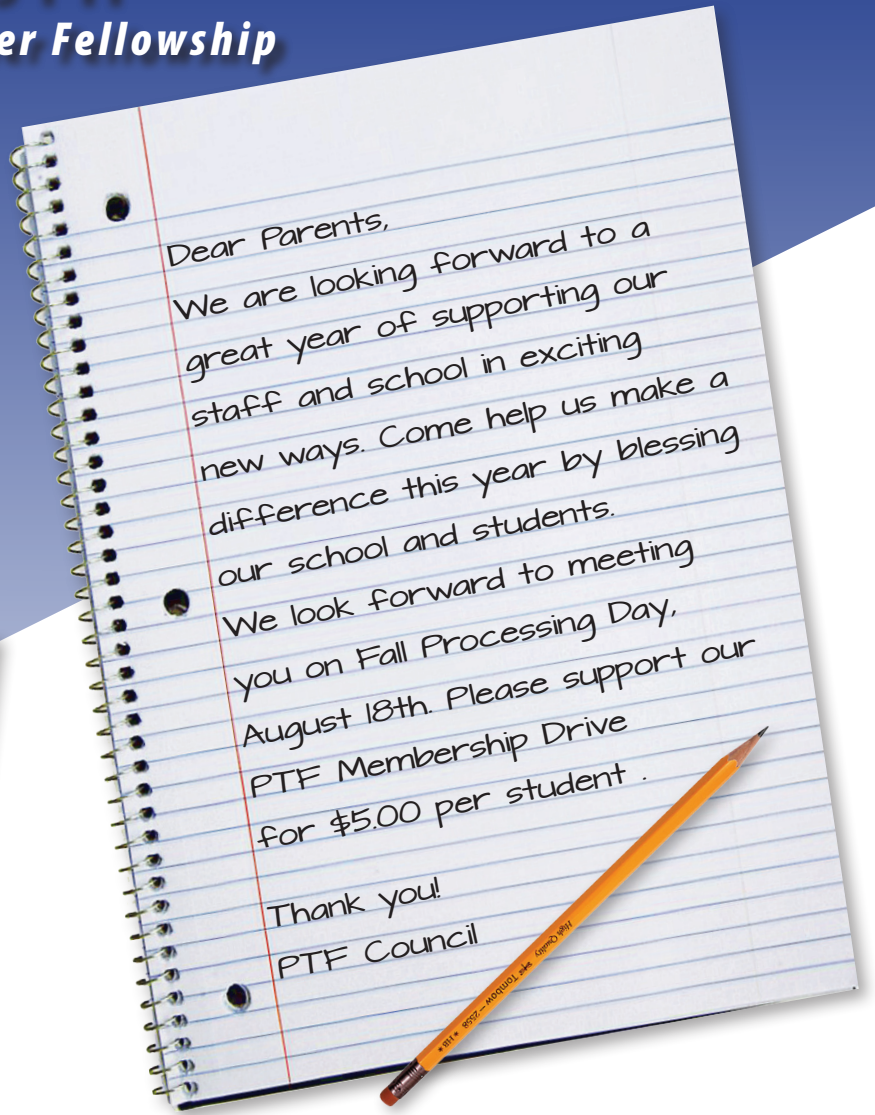 er Fellowship
Dear Parents,
We are looking forward to a
great year of supporting our
staff and school in exciting
new ways. Come help us make a
difference this year by blessing
our school and students.
We look forward to meeting
you on Fall Processing Day,
August 18th. Please support our
PTF Membership Drive
for $5.00 per student .
Thank you!
PTF Council
High Quality Tombow-2558 * HB *